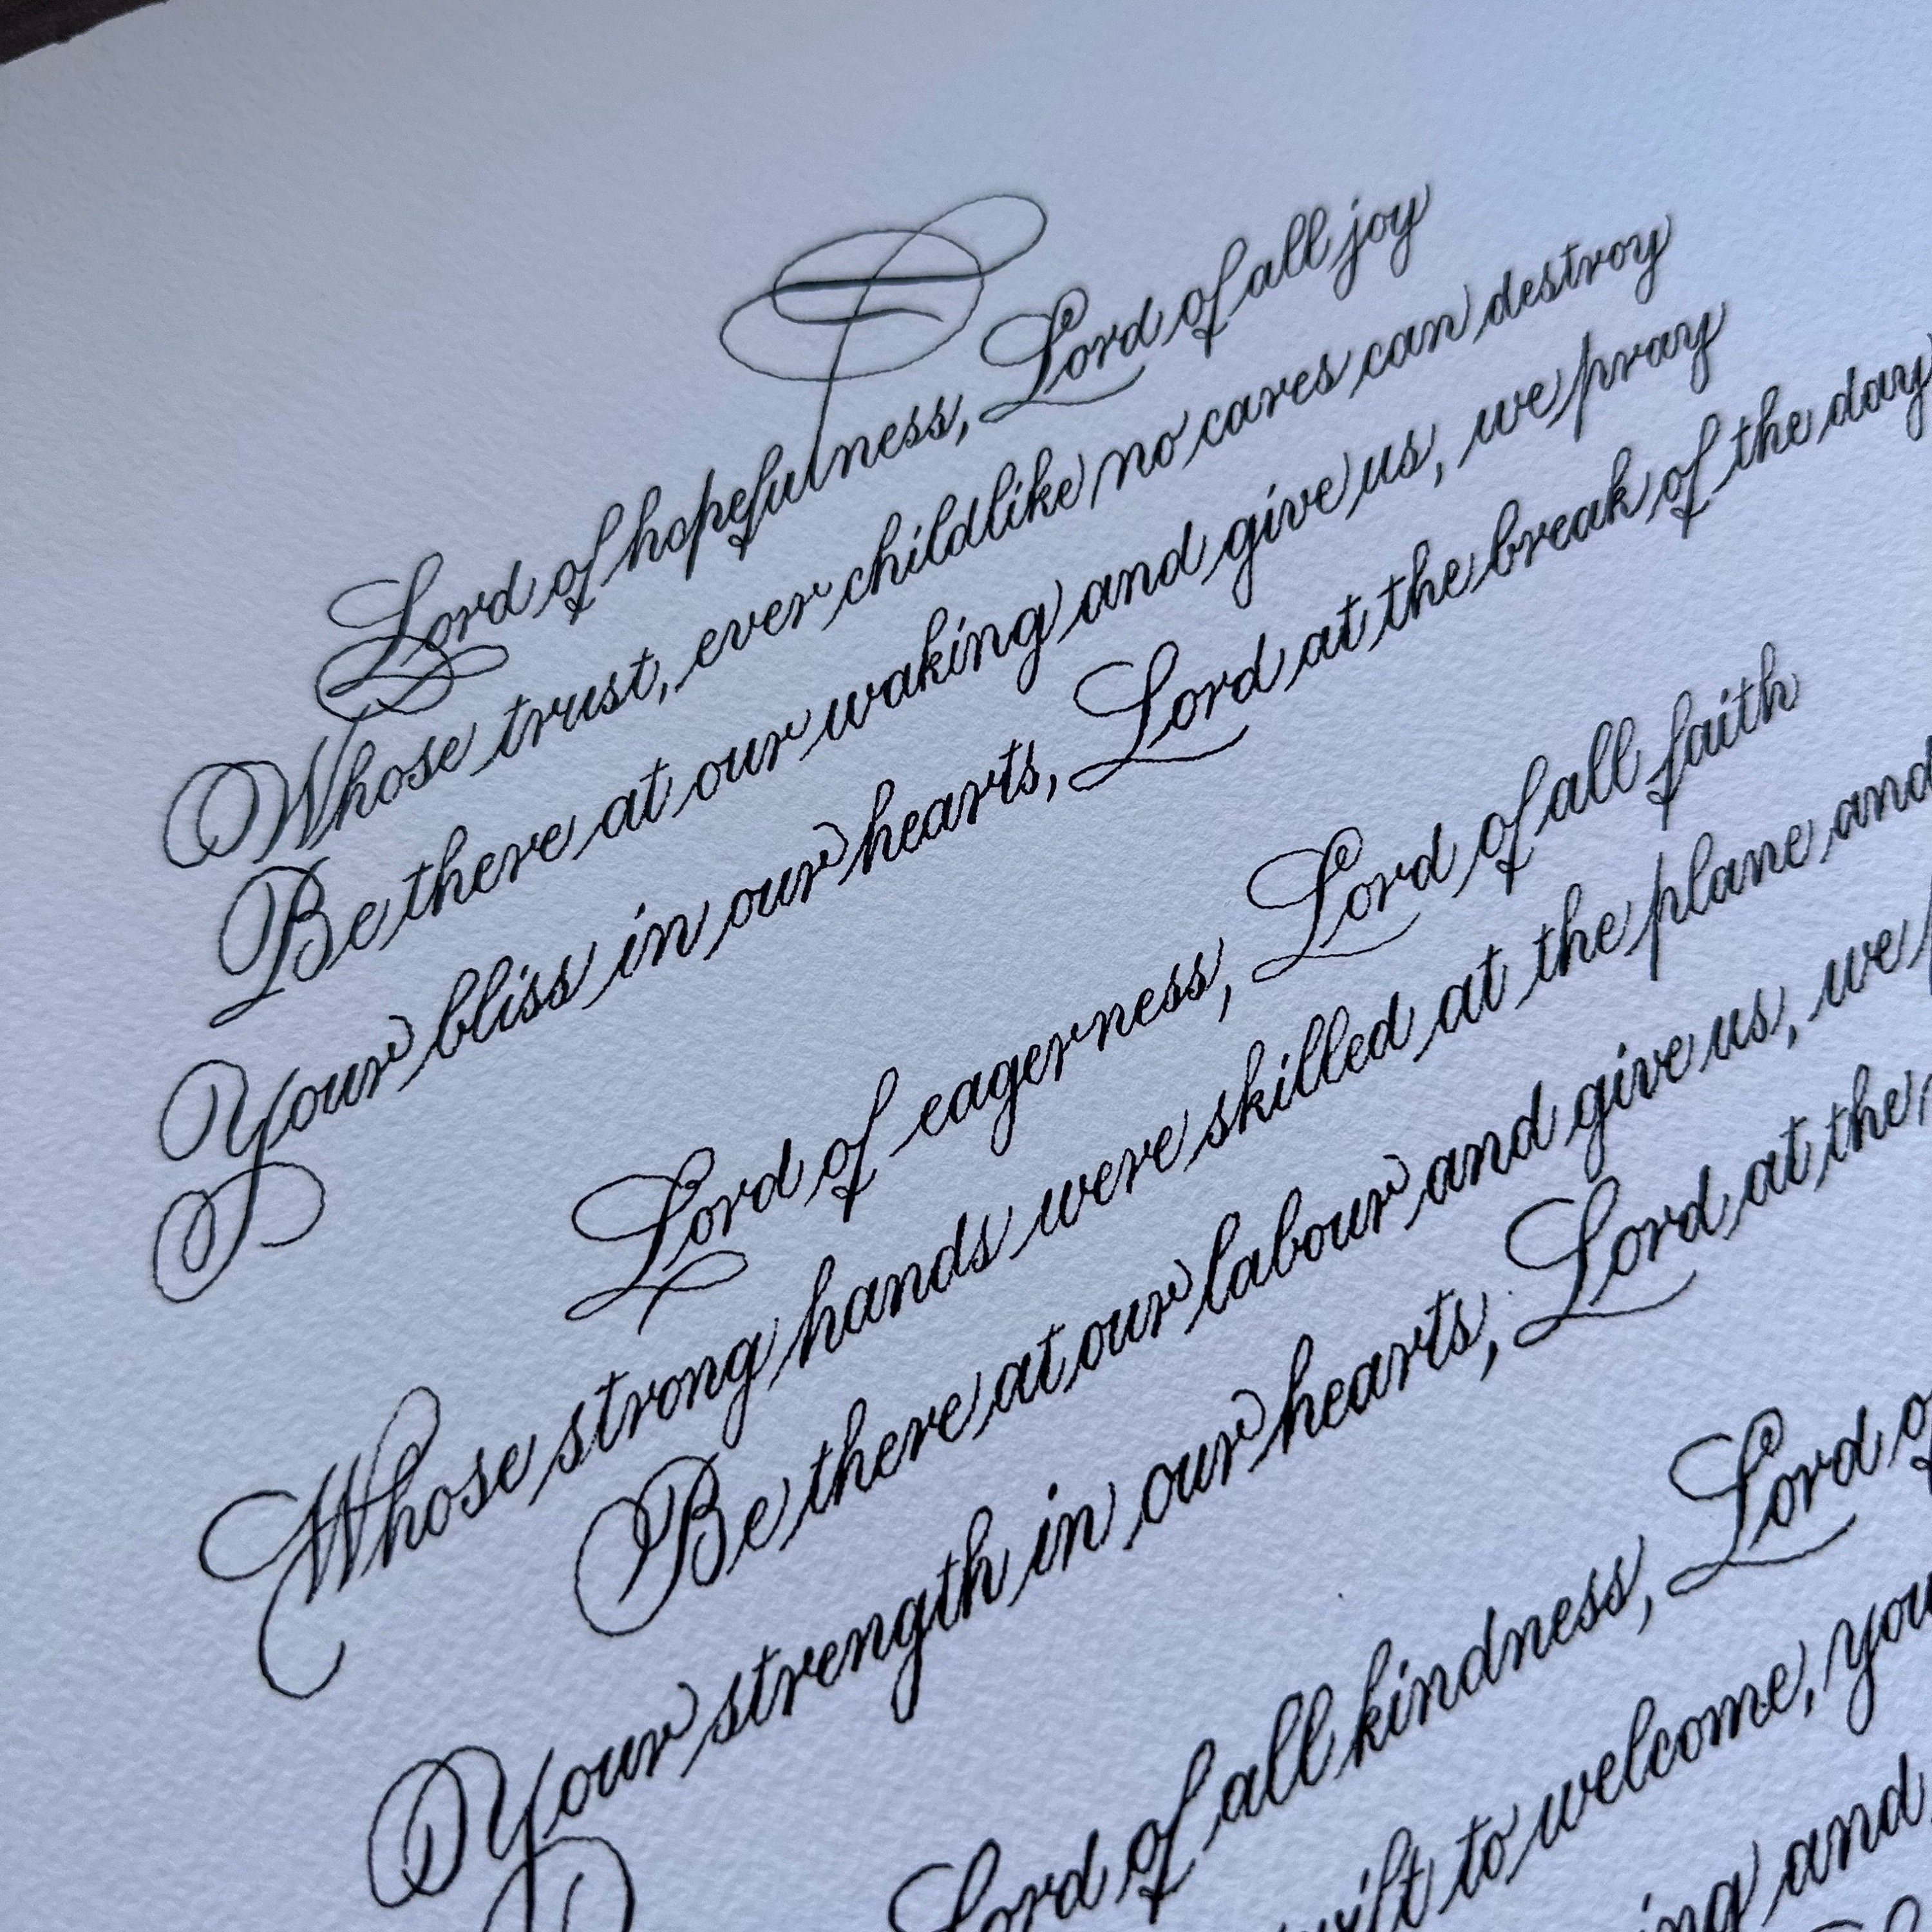 Lord of hopefulness, Lord of all joy
Whose trust, ever childlike no cares can destroy
Be there at our waking and give us, we pray
Your bliss in our hearts, Lord at the break of the day
Lord of eagerness, Lord of all faith
Whose strong hands were skilled at the plane and
Be there at our labour and give us, we
Your strength in our hearts, Lord at the
Lord of all kindness, Lord
to welcome, you
and